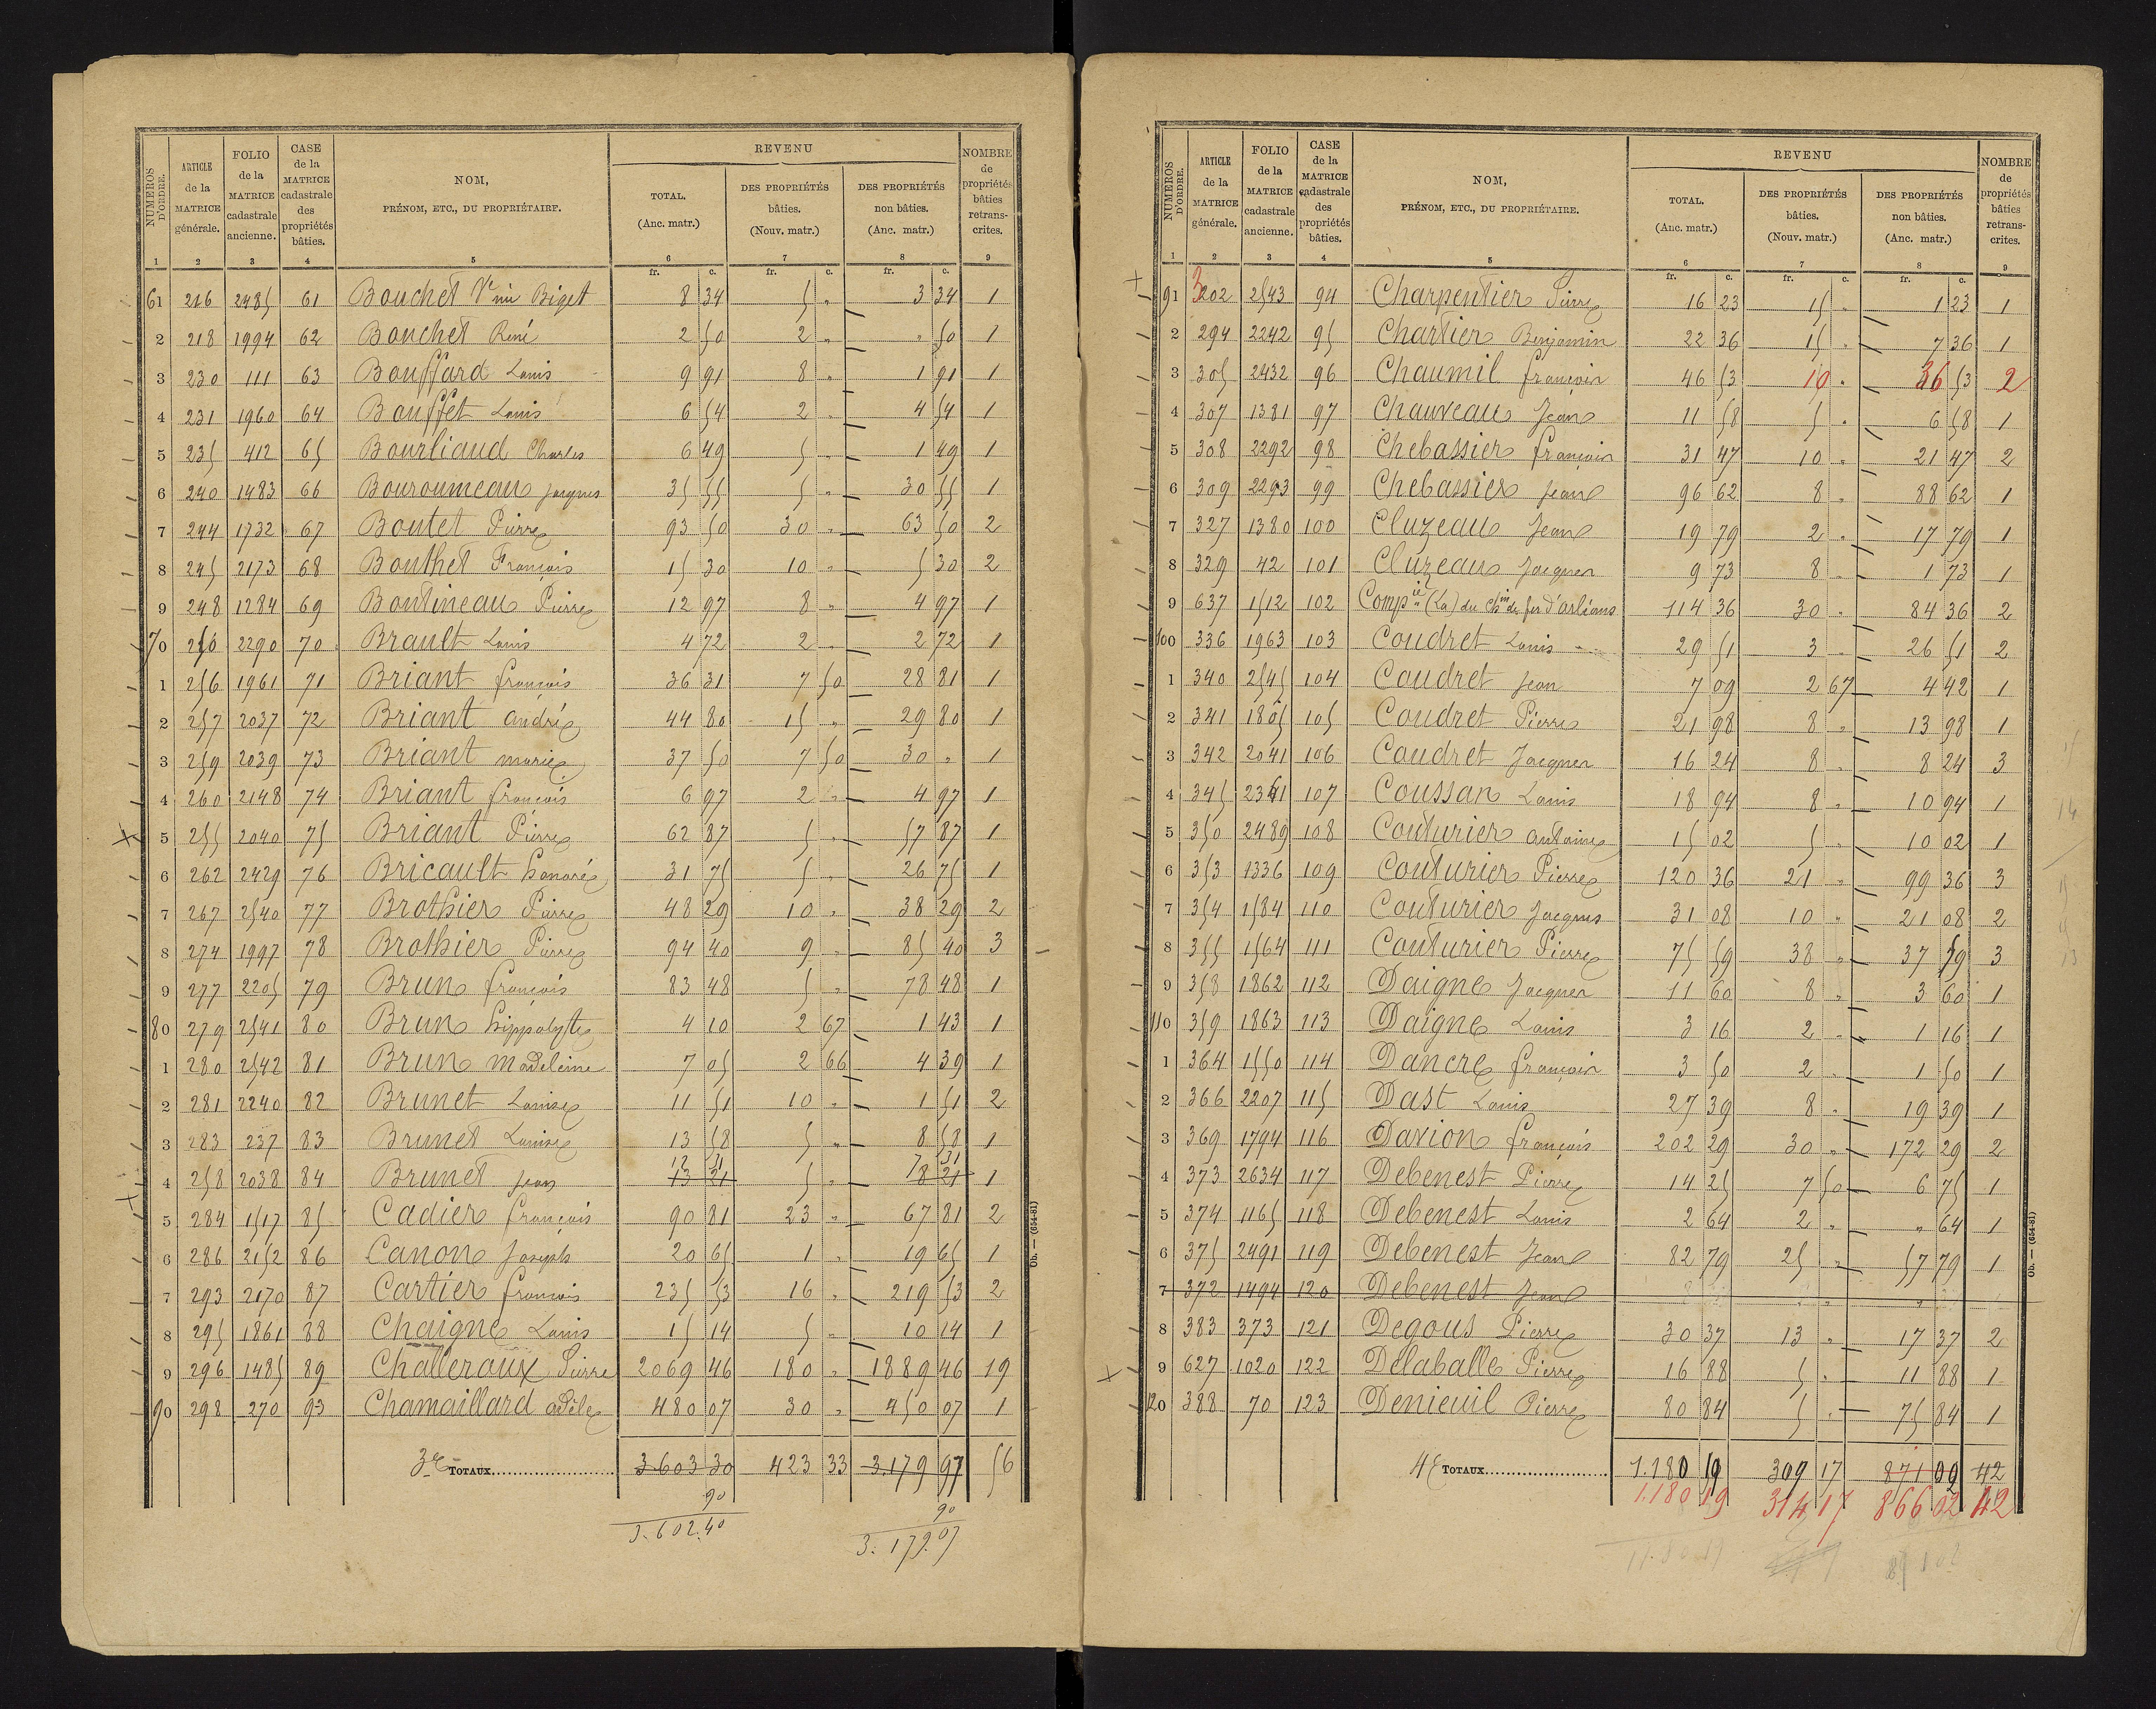 NUMÉROS D'ORDRE. | ARTICLE de la MATRICE générale. | FOLIO de la MATRICE cadastrale ancienne. | CASE de la MATRICE cadastrale des propriétés bâties. | NOM, PRÉNOM, ETC., DU PROPRIÉTAIRE. | REVENU | NOMBRE de propriétés bâties retranscrites.
TOTAL. (Anc. matr.) | DES PROPRIÉTÉS bâties. (Nouv. matr.) | DES PROPRIÉTÉS non bâties. (Anc. matr.)
1 2 3 4 5 6 7 8 9
fr. c. fr. c. fr. c.
61 216 2485 61 Bouchet Vnin Biget 8 34 5 " 3 34 1
2 218 1994 62 Bouchet René 2 50 2 " " 50 1
3 230 111 63 Bouffard Louis 9 91 8 " 1 91 1
4 231 1960 64 Bouffet Louis 6 54 2 " 4 54 1
5 235 412 65 Bourliaud Charles 6 49 5 " 1 49 1
6 240 1483 66 Bouroumeau Jacques 35 55 5 " 30 55 1
7 244 1732 67 Boutet Pierre 93 50 30 " 63 50 2
8 245 2173 68 Bouthet François 15 30 10 " 5 30 2
9 248 1284 69 Boutineau Pierre 12 97 8 " 4 97 1
70 250 2290 70 Brault Louis 4 72 2 " 2 72 1
1 256 1961 71 Briant françois 36 31 7 50 28 81 1
2 257 2037 72 Briant andré 44 80 15 " 29 80 1
3 259 2039 73 Briant marie 37 50 7 50 30 " 1
4 260 2148 74 Briant françois 6 97 2 " 4 97 1
5 255 2040 75 Briant Pierre 62 87 5 " 57 87 1
6 262 2429 76 Bricault honoré 31 75 5 " 26 75 1
7 267 2540 77 Brothier Pierre 48 29 10 " 38 29 2
8 274 1997 78 Brothier Pierre 94 40 9 " 85 40 3
9 277 2205 79 Brun françois 83 48 5 " 78 48 1
80 279 2541 80 Brun hippolyte 4 10 2 67 1 43 1
1 280 2542 81 Brun Madeleine 7 05 2 66 4 39 1
2 281 2240 82 Brunet Louise 11 51 10 " 1 51 2
3 283 237 83 Brunet Louise 13 58 5 " 8 58 1
12 31 7 31
4 258 2038 84 Brunet Jean 13 21 5 " 8 21 1
5 284 1517 85 Cadier françois 90 81 23 " 67 81 2
6 286 2152 86 Canon Joseph 20 65 1 " 19 65 1
7 293 2170 87 Cartier françois 235 53 16 " 219 53 2
8 295 1861 88 Chaigne Louis 15 14 5 " 10 14 1
9 296 1485 89 Challeraux Pierre 2069 46 180 " 1889 46 19
90 298 270 93 Chamaillard adèle 480 07 30 " 450 07 1
3e TOTAUX 3.603 30 423 33 3.179 97 56
90 90
3.602.40 3.179.07
Ob. — (654-81)
NUMÉROS D'ORDRE. | ARTICLE de la MATRICE générale. | FOLIO de la MATRICE cadastrale ancienne. | CASE de la MATRICE cadastrale des propriétés bâties. | NOM, PRÉNOM, ETC., DU PROPRIÉTAIRE. | REVENU | NOMBRE de propriétés bâties retranscrites.
TOTAL. (Anc. matr.) | DES PROPRIÉTÉS bâties. (Nouv. matr.) | DES PROPRIÉTÉS non bâties. (Anc. matr.)
1 2 3 4 5 6 7 8 9
fr. c. fr. c. fr. c.
91 302 2543 94 Charpentier Pierre 16 23 15 " 1 23 1
2 294 2242 95 Chartier Benjamin 22 36 15 " 7 36 1
3 305 2432 96 Chaumil françois 46 53 10 " 36 53 2
4 307 1381 97 Chauveau Jean 11 58 5 " 6 58 1
5 308 2292 98 Chebassier françois 31 47 10 " 21 47 2
6 309 2293 99 Chebassier Jean 96 62 8 " 88 62 1
7 327 1380 100 Cluzeau Jean 19 79 2 " 17 79 1
8 329 42 101 Cluzeau Jacques 9 73 8 " 1 73 1
9 637 1512 102 Compie (La) du chin de fer d'orléans 114 36 30 " 84 36 2
100 336 1963 103 Coudret Louis 29 51 3 " 26 51 2
1 340 2545 104 Coudret Jean 7 09 2 67 4 42 1
2 341 1805 105 Coudret Pierre 21 98 8 " 13 98 1
3 342 2041 106 Coudret Jacques 16 24 8 " 8 24 3
4 345 2341 107 Coussan Louis 18 94 8 " 10 94 1
5 350 2489 108 Couturier antoine 15 02 5 " 10 02 1
6 353 1336 109 Couturier Pierre 120 36 21 " 99 36 3
7 354 1584 110 Couturier Jacques 31 08 10 " 21 08 2
8 355 1564 111 Couturier Pierre 75 59 38 " 37 59 3
9 358 1862 112 Daigne Jacques 11 60 8 " 3 60 1
110 359 1863 113 Daigne Louis 3 16 2 " 1 16 1
1 364 1550 114 Dancre françois 3 50 2 " 1 50 1
2 366 2207 115 Dast Louis 27 39 8 " 19 39 1
3 369 1794 116 Davion françois 202 29 30 " 172 29 2
4 373 2634 117 Debenest Pierre 14 25 7 50 6 75 1
5 374 1165 118 Debenest Louis 2 64 2 " " 64 1
6 375 2491 119 Debenest Jean 82 79 25 " 57 79 1
7 372 1494 120 Debenest Jean
8 383 373 121 Degous Pierre 30 37 13 " 17 37 2
9 627 1020 122 Delaballe Pierre 16 88 5 " 11 88 1
120 388 70 123 Denieuil Pierre 80 84 5 " 75 84 1
4e TOTAUX 1.180 19 309 17 871 09 42
1.180 19 314 17 866 02 42
Ob. — (654-81)